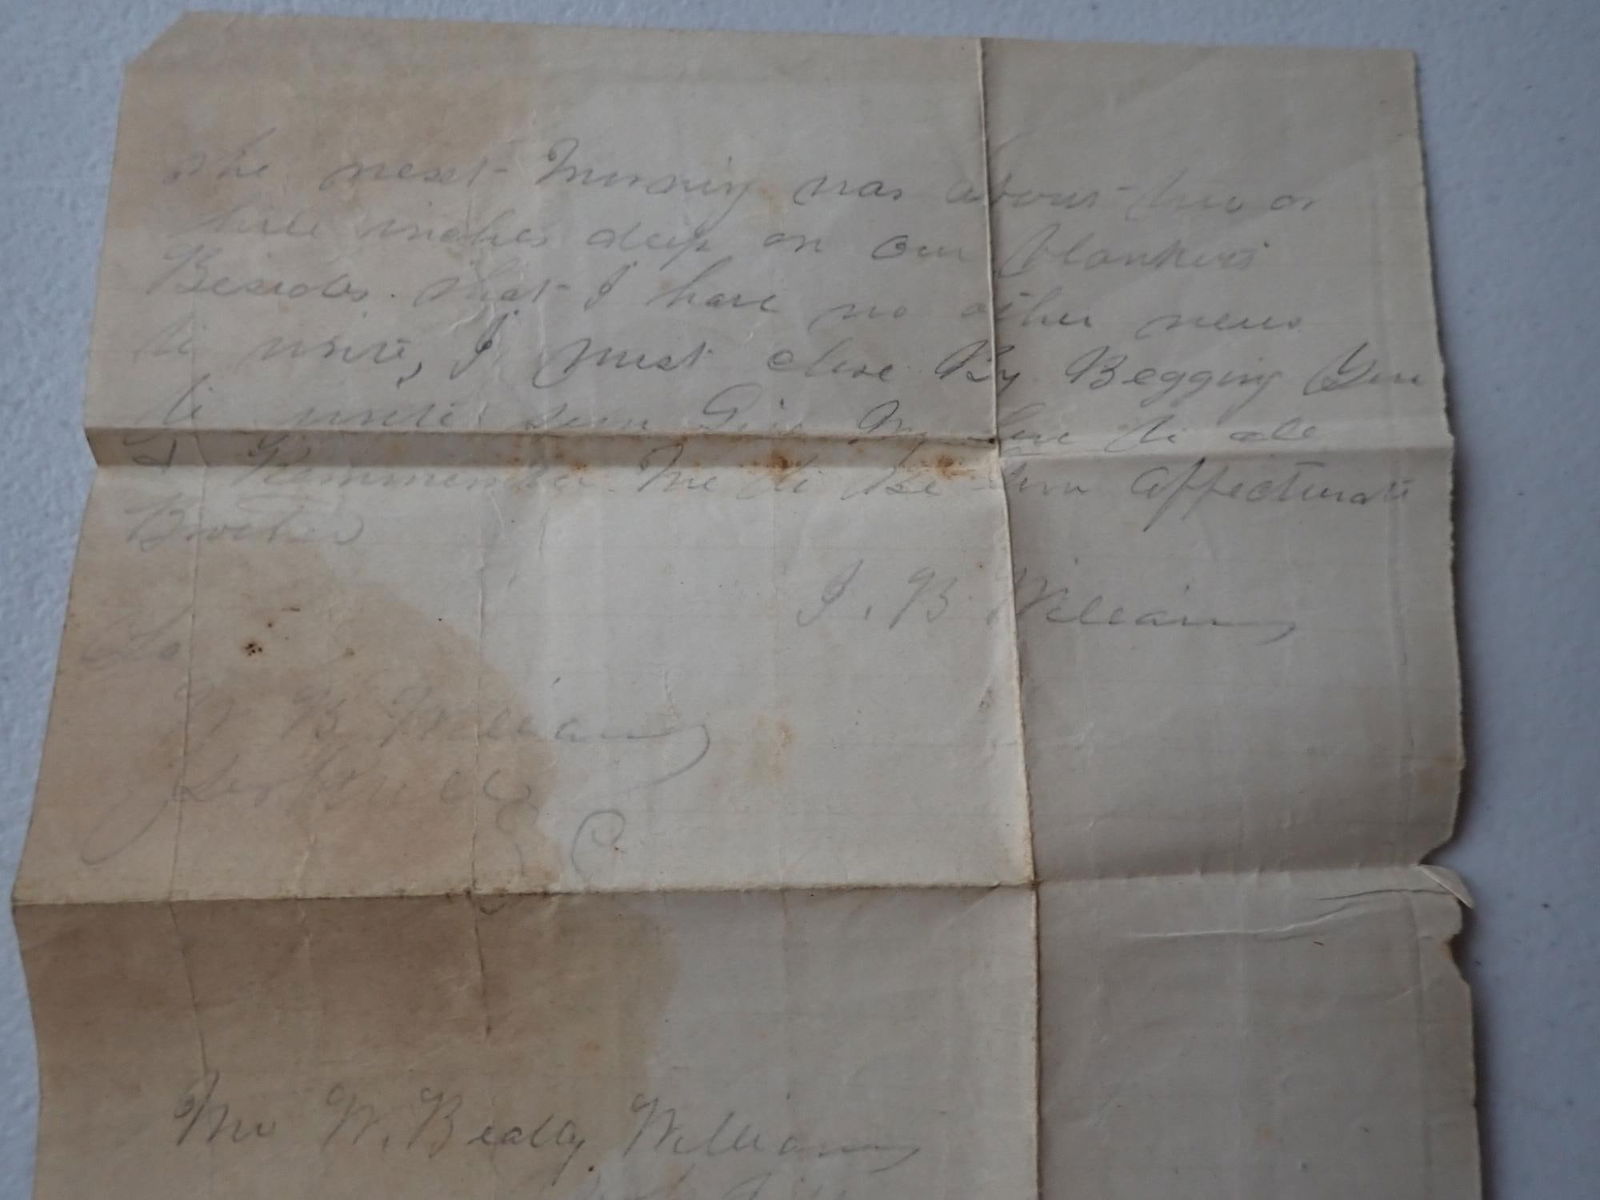 the next Morning was about two or
three inches deep on our Blankets
Besides that I have no other news
to write, I must close By Begging you
to write soon Give My Love to all
& Remember Me to be your affectionate
Brother
J. B. Williams
To
W B Williams
C
Mr W. Beally Williams